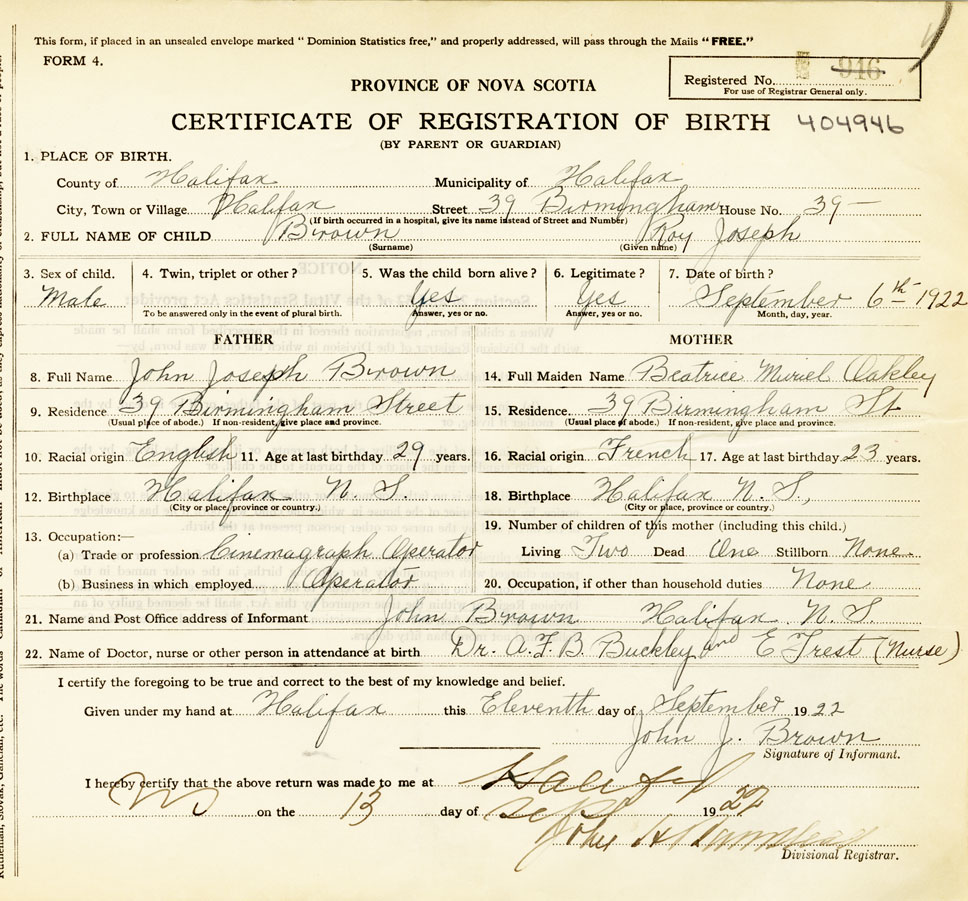 This form, if placed in an unsealed envelope marked " Dominion Statistics free," and properly addressed, will pass through the Mails "FREE."
FORM 4.
PROVINCE OF NOVA SCOTIA
Registered No. 946
For use of Registrar General only.
CERTIFICATE OF REGISTRATION OF BIRTH 404946
(BY PARENT OR GUARDIAN)
1. PLACE OF BIRTH.
County of Halifax Municipality of Halifax
City, Town or Village Halifax Street 39 Birmingham House No. 39—
(If birth occurred in a hospital, give its name instead of Street and Number)
2. FULL NAME OF CHILD Brown Roy Joseph
(Surname) (Given name)
3. Sex of child. 4. Twin, triplet or other? 5. Was the child born alive? 6. Legitimate? 7. Date of birth?
Male Yes Yes September 6th 1922
To be answered only in the event of plural birth. Answer, yes or no. Answer, yes or no. Month, day, year.
FATHER MOTHER
8. Full Name John Joseph Brown 14. Full Maiden Name Beatrice Muriel Oakley
9. Residence 39 Birmingham Street 15. Residence. 39 Birmingham St
(Usual place of abode.) If non-resident, give place and province. (Usual place of abode.) If non-resident, give place and province.
10. Racial origin English 11. Age at last birthday 29 years. 16. Racial origin French 17. Age at last birthday 23 years.
12. Birthplace Halifax N. S. 18. Birthplace Halifax N. S.,
(City or place, province or country.) (City or place, province or country.)
13. Occupation:— 19. Number of children of this mother (including this child.)
(a) Trade or profession Cinemagraph Operator Living Two Dead One Stillborn None
(b) Business in which employed Operator 20. Occupation, if other than household duties None
21. Name and Post Office address of Informant John Brown Halifax N. S.
22. Name of Doctor, nurse or other person in attendance at birth Dr. A. F. B. Buckley and E Trest (Nurse)
I certify the foregoing to be true and correct to the best of my knowledge and belief.
Given under my hand at Halifax this Eleventh day of September 1922
John J. Brown
Signature of Informant.
I hereby certify that the above return was made to me at Halifax
on the 13 day of Sept 1922
John
Divisional Registrar.